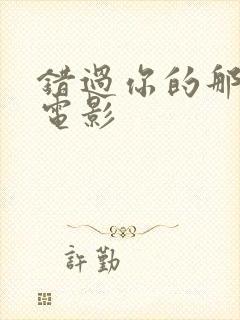 錯過你的那
電影
許勤